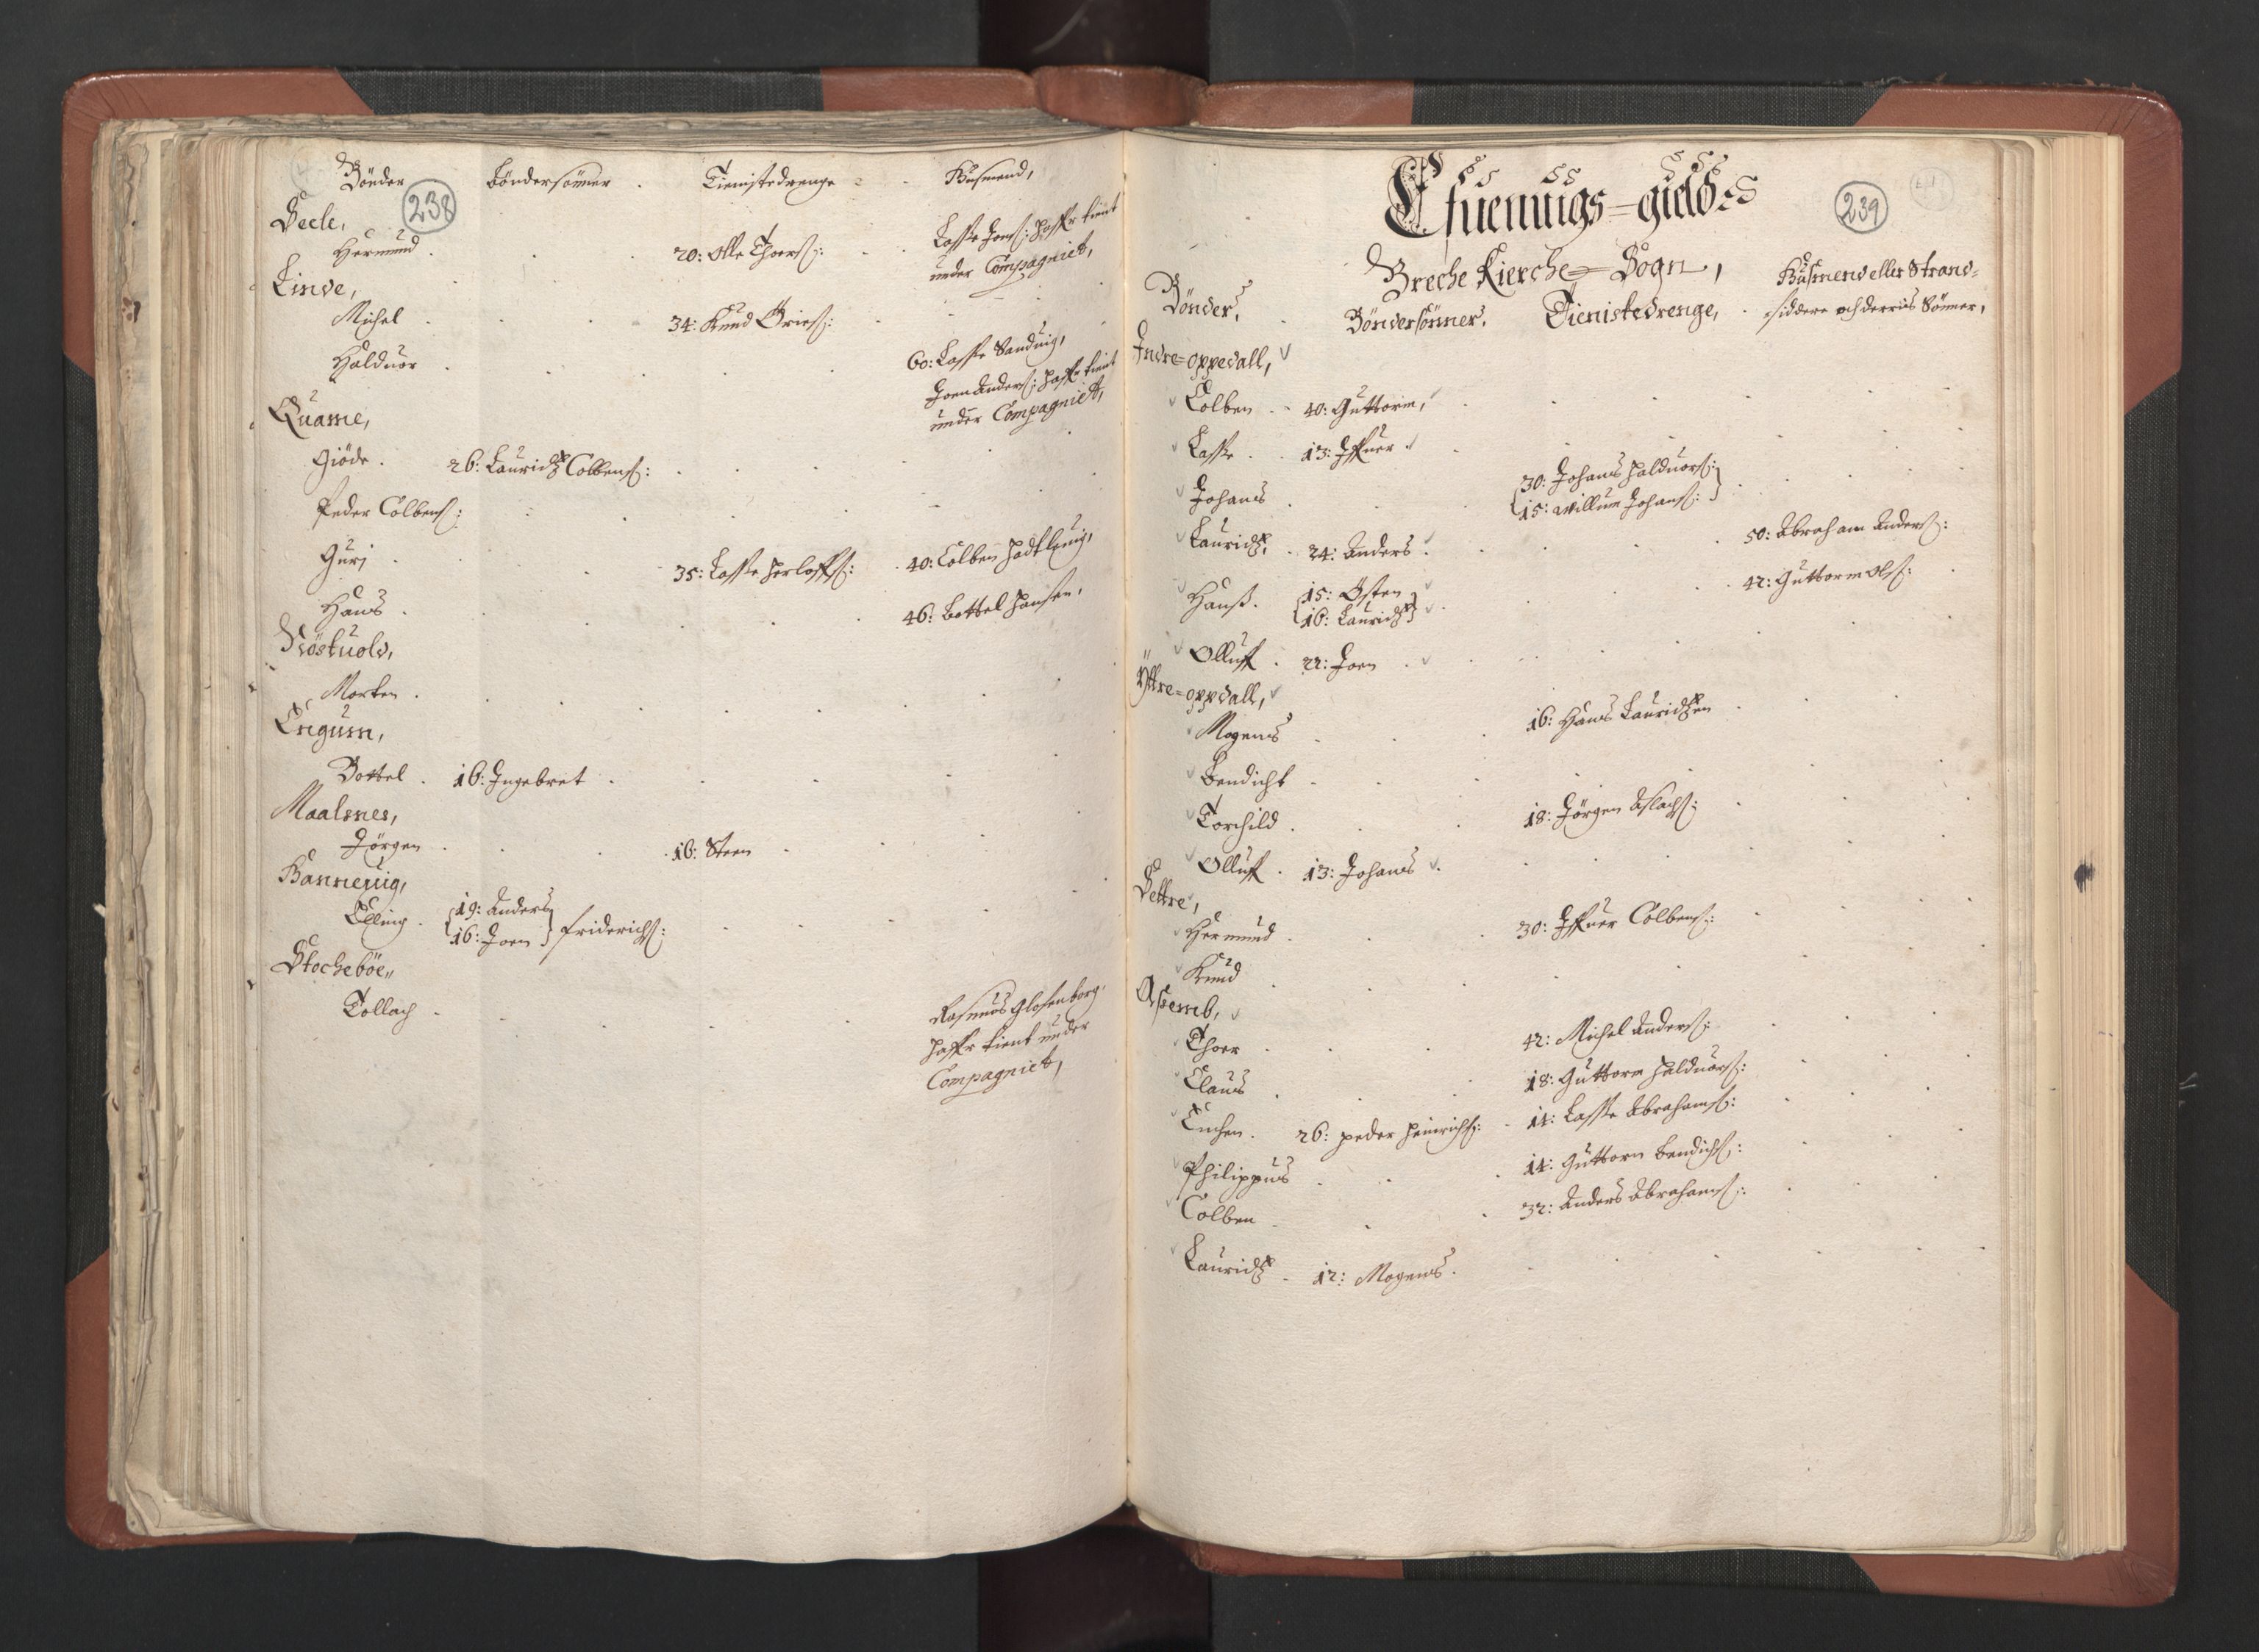 238
Bönder Böndersönner Tienistedrenge Husmend,
Seele,
Hermund 20: Olle Thoers: Lasse Joens: haffr tient
under Compagniet,
Linde,
Michel 34: Knud Öries:
Halduor 60: Lasse Sanduig,
Joen Anders: haffr tient
under Compagniet,
Quame,
Giöde 26: Lauridtz Colbens:
Peder Colbens:
Guri 35: Lasse Herloffs: 40: Colben
Hans 46: Bottel Hansen,
Morten
Engum,
Bottel 16: Ingebret
Maalsnes,
Jörgen 16: Steen
Hanneuig,
Elling {19: Anders
16: Joen} Friderichs:
Stocheböe,,
Tollach Rasmus Glosenborg,
haffr tient under
Compagniet,
Efuenuigs=gield
239
Breche Kierche=Sogn,
Bönder, Böndersönner, Tienistedrenge, Husmend eller Strand=
siddere och derris Sönner,
Indre=oppedall,
Colben 40: Guttorm,
Lasse 13: Iffuer
Johans {30: Johans Halduors:
15: Willum Johans:}
Lauridtz, 24: Anders 50: Abraham Anders:
Hanß {15: Östen
16: Lauridtz} 42: Guttorm Ols:
Olluff 22: Joen
Yttre=oppdall,
Mogens 16: Hans Lauridtzen
Bendicht
Torchild 18: Jörgen Aslachs:
Olluff 13: Johans
Settre,
Hermund 30: Iffuer Colbens:
Knud
Thoer 42: Michel Anders:
Claus 18: Guttorm Halduors:
Enchen 26: Peder Heinrichs: 14: Lasse Abrahams:
Philippus 14: Guttorm Bendichs:
Colben 32: Anders Abrahams:
Lauridtz 12: Mogens